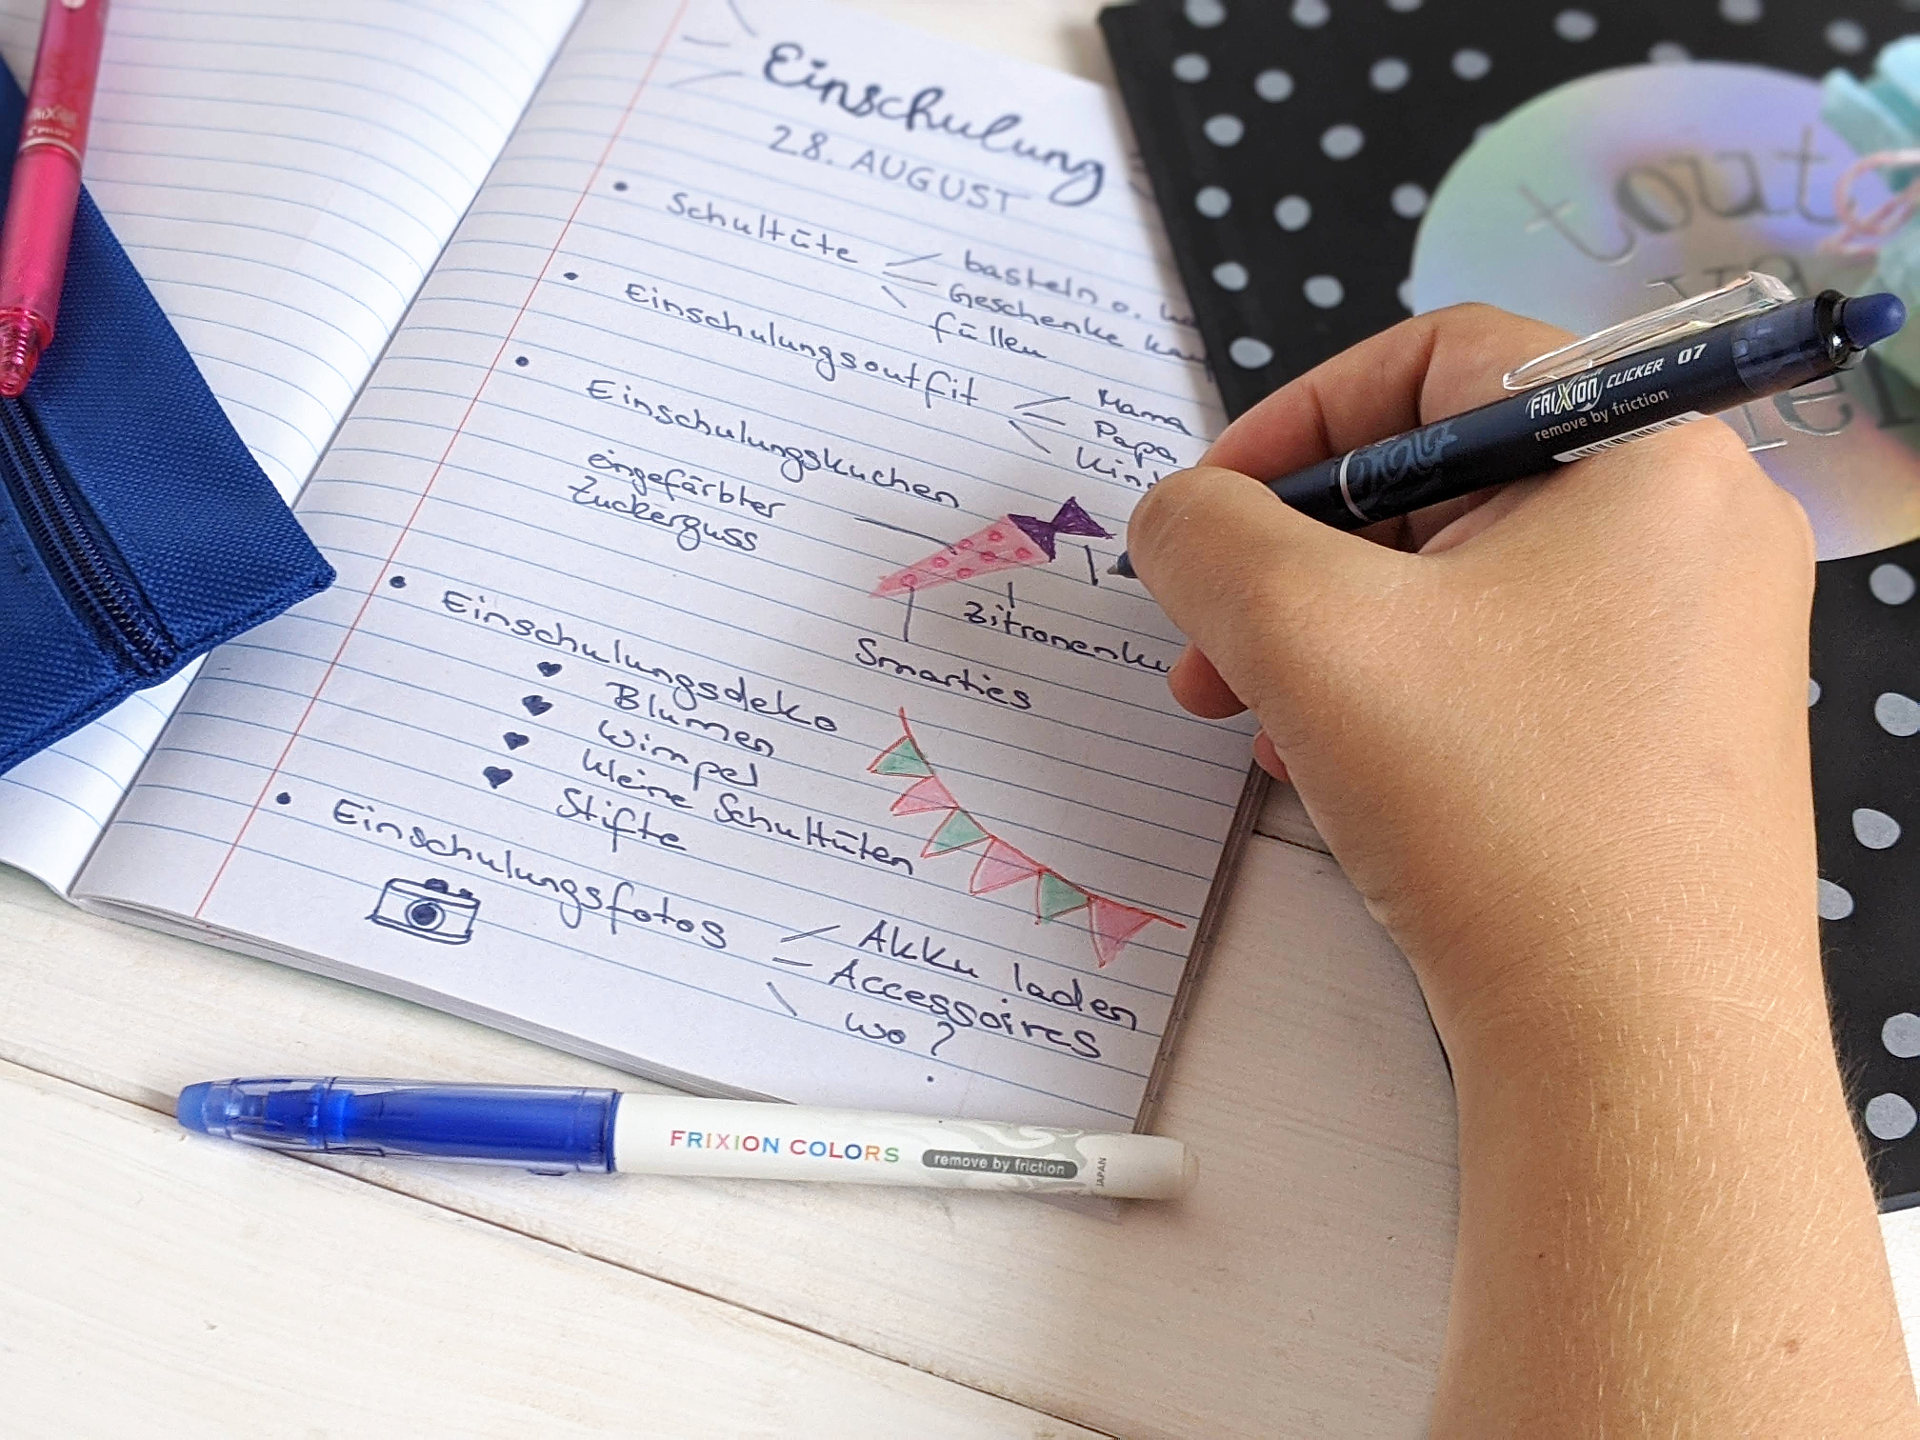 Einschulung
28. AUGUST
• Schultüte
basteln o.
Geschenke
füllen
• Einschulungsoutfit
Mama
Papa
• Einschulungskuchen
eingefärbter
Zuckerguss
Smarties
• Einschulungsdeko
Blumen
Wimpel
kleine Schultüten
Stifte
• Einschulungsfotos
Akku laden
Accessoires
wo?
FRIXION CLICKER 07
remove by friction
FRIXION COLORS
remove by friction
JAPAN
tout
va
FRIXION
PILOT